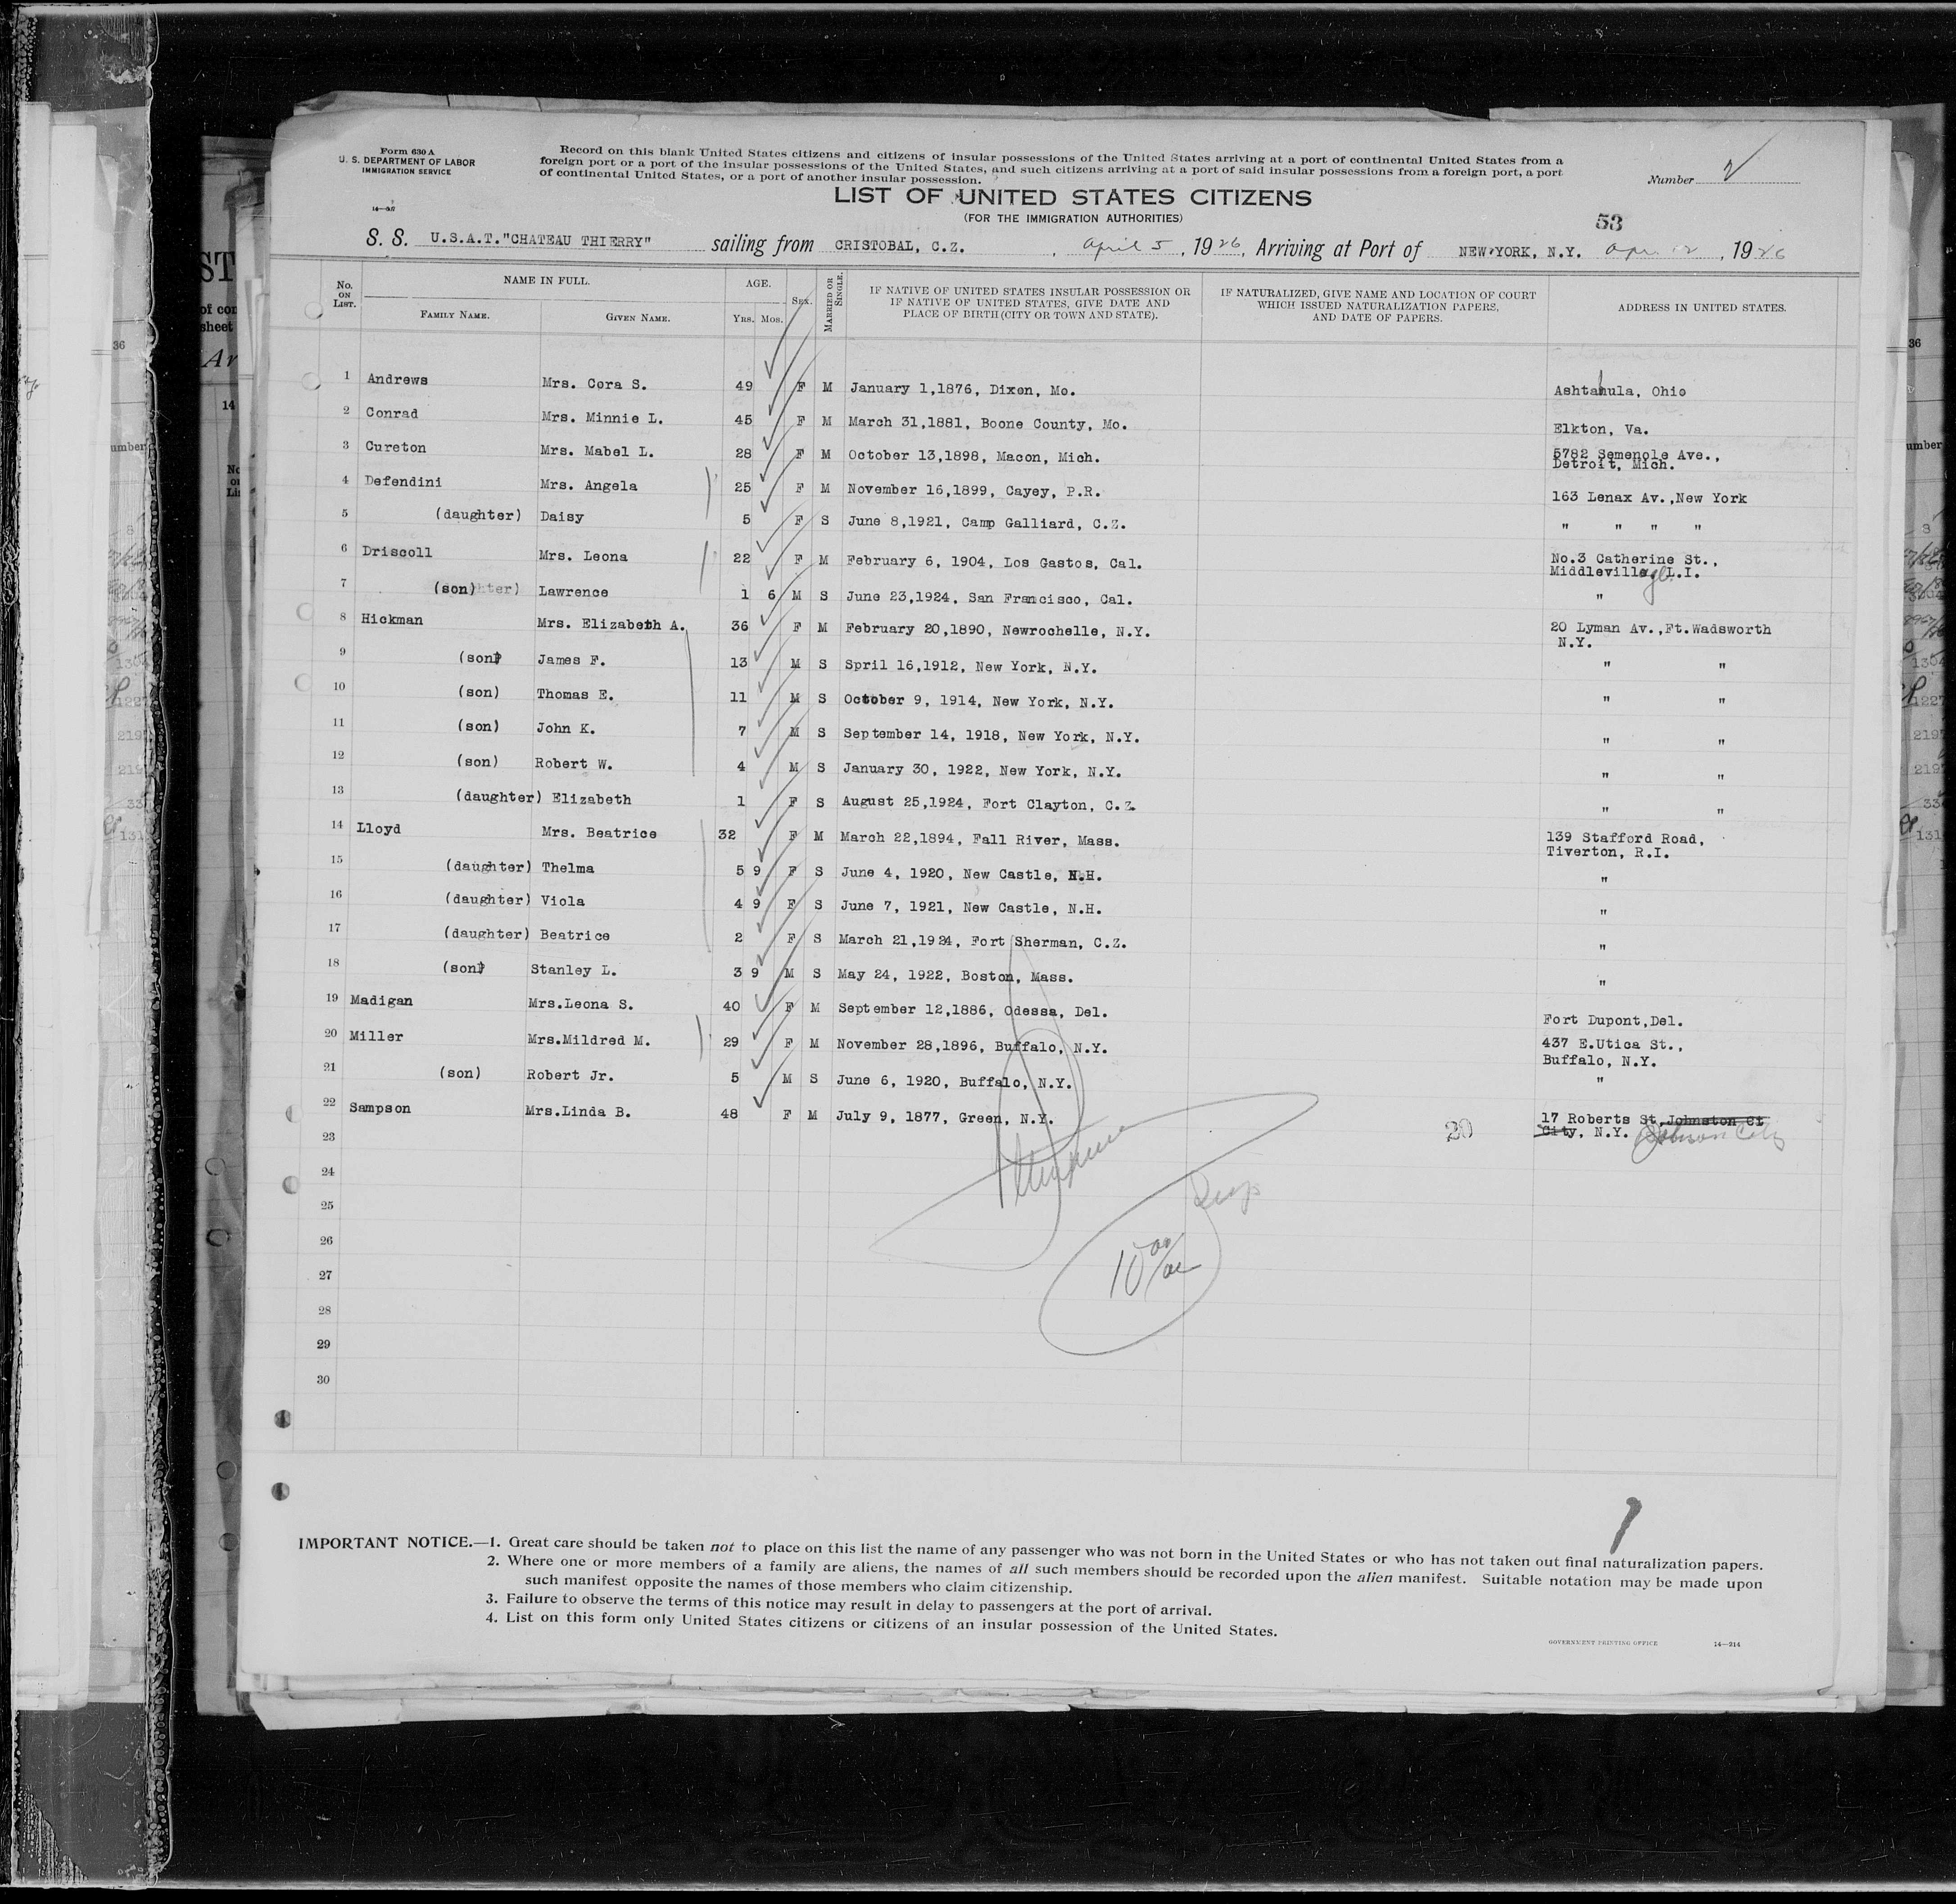 Form 630 A
U. S. DEPARTMENT OF LABOR
IMMIGRATION SERVICE
Record on this blank United States citizens and citizens of insular possessions of the United States arriving at a port of continental United States from a
foreign port or a port of the insular possessions of the United States, and such citizens arriving at a port of said insular possessions from a foreign port, a port
of continental United States, or a port of another insular possession.
Number 2
LIST OF UNITED STATES CITIZENS
(FOR THE IMMIGRATION AUTHORITIES)
53
S. S. U.S.A.T."CHATEAU THIERRY" sailing from CRISTOBAL, C.Z. , April 5 , 1926, Arriving at Port of NEW YORK, N.Y. Apr. 12 , 1926
No. ON LIST. NAME IN FULL. FAMILY NAME. GIVEN NAME. AGE. YRS. MOS. SEX. MARRIED OR SINGLE. IF NATIVE OF UNITED STATES INSULAR POSSESSION OR IF NATIVE OF UNITED STATES, GIVE DATE AND PLACE OF BIRTH (CITY OR TOWN AND STATE). IF NATURALIZED, GIVE NAME AND LOCATION OF COURT WHICH ISSUED NATURALIZATION PAPERS, AND DATE OF PAPERS. ADDRESS IN UNITED STATES.
1 Andrews Mrs. Cora S. 49 F M January 1,1876, Dixon, Mo. Ashtabula, Ohio
2 Conrad Mrs. Minnie L. 45 F M March 31,1881, Boone County, Mo. Elkton, Va.
3 Cureton Mrs. Mabel L. 28 F M October 13,1898, Macon, Mich. 5782 Semenole Ave.,
Detroit, Mich.
4 Defendini Mrs. Angela 25 F M November 16,1899, Cayey, P.R. 163 Lenax Av.,New York
5 (daughter) Daisy 5 F S June 8,1921, Camp Galliard, C.Z. " " " "
6 Driscoll Mrs. Leona 22 F M February 6, 1904, Los Gastos, Cal. No.3 Catherine St.,
Middleville, L.I.
7 (son) Lawrence 1 6 M S June 23,1924, San Francisco, Cal. "
8 Hickman Mrs. Elizabeth A. 36 F M February 20,1890, Newrochelle, N.Y. 20 Lyman Av.,Ft.Wadsworth
N.Y.
9 (son) James F. 13 M S Spril 16,1912, New York, N.Y. " "
10 (son) Thomas E. 11 M S October 9, 1914, New York, N.Y. " "
11 (son) John K. 7 M S September 14, 1918, New York, N.Y. " "
12 (son) Robert W. 4 M S January 30, 1922, New York, N.Y. " "
13 (daughter) Elizabeth 1 F S August 25,1924, Fort Clayton, C.Z. " "
14 Lloyd Mrs. Beatrice 32 F M March 22,1894, Fall River, Mass. 139 Stafford Road,
Tiverton, R.I.
15 (daughter) Thelma 5 9 F S June 4, 1920, New Castle, N.H. "
16 (daughter) Viola 4 9 F S June 7, 1921, New Castle, N.H. "
17 (daughter) Beatrice 2 F S March 21,1924, Fort Sherman, C.Z. "
18 (son) Stanley L. 3 9 M S May 24, 1922, Boston, Mass. "
19 Madigan Mrs.Leona S. 40 F M September 12,1886, Odessa, Del. Fort Dupont,Del.
20 Miller Mrs.Mildred M. 29 F M November 28,1896, Buffalo, N.Y. 437 E.Utica St.,
Buffalo, N.Y.
21 (son) Robert Jr. 5 M S June 6, 1920, Buffalo, N.Y. "
22 Sampson Mrs.Linda B. 48 F M July 9, 1877, Green, N.Y. 17 Roberts St,Johnston Ct
City, N.Y. Johnson City
20
23
24
25
26
27
28
29
30
IMPORTANT NOTICE.—1. Great care should be taken not to place on this list the name of any passenger who was not born in the United States or who has not taken out final naturalization papers.
2. Where one or more members of a family are aliens, the names of all such members should be recorded upon the alien manifest. Suitable notation may be made upon
such manifest opposite the names of those members who claim citizenship.
3. Failure to observe the terms of this notice may result in delay to passengers at the port of arrival.
4. List on this form only United States citizens or citizens of an insular possession of the United States.
GOVERNMENT PRINTING OFFICE 14—214